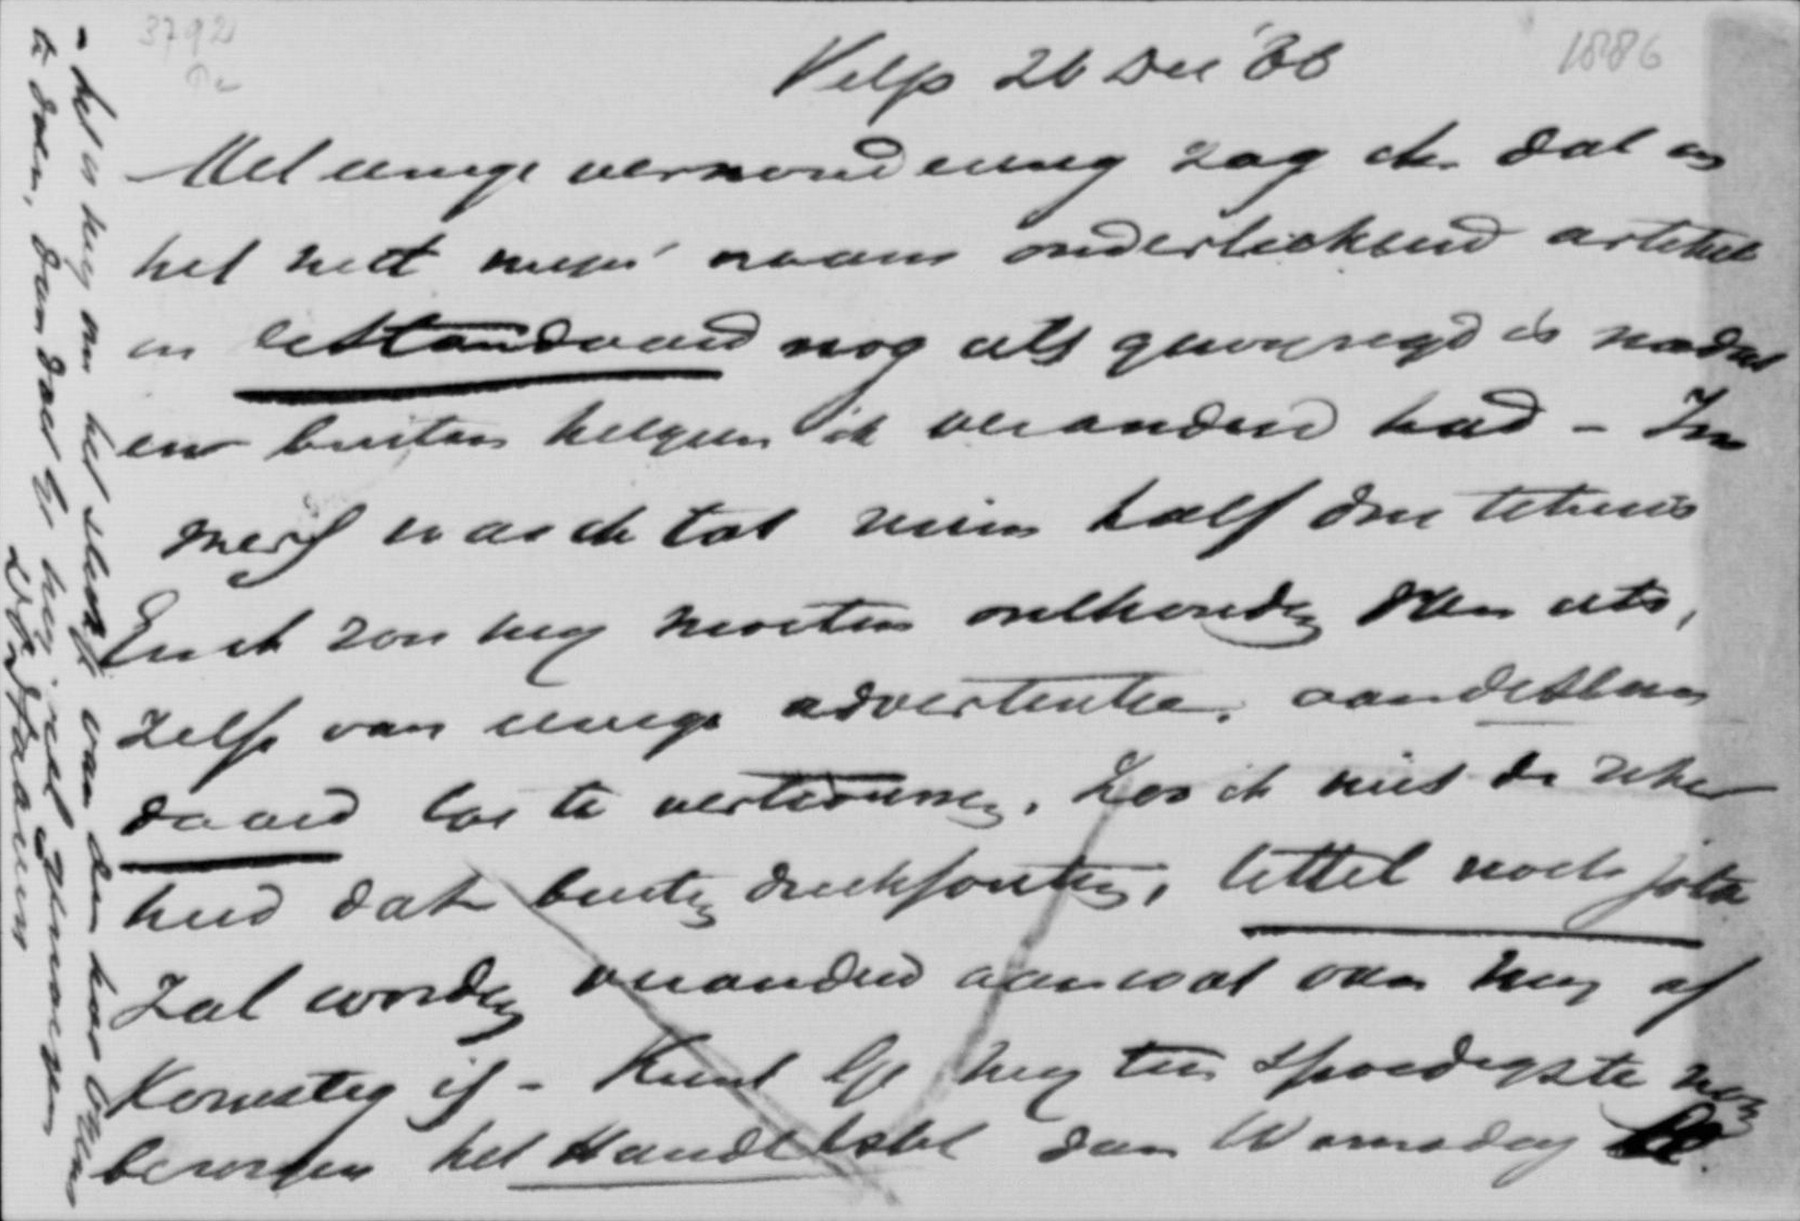 3792
1886
Velp 26 Dec '86
Met eenige verwondering zag ik dat in
het met mijn naam onderteekend artikel
in de Standaard nog iets gewijzigd is nadat
en buiten hetgeen ik veranderd had – Im
mers was ik tot ruim half drie te
En ik zou mij moeten onthouden van iets,
zelfs van eenige advertentie, aan de Stan
daard toe te vertrouwen, zoo ik niet de zeker
heid dat buiten drukfouten, tittel noch jota
zal worden veranderd aan wat van mij af
komstig is – Kunt Gij mij ten spoedigste nog
bezorgen het Handelsblad van Woensdag
– het is mij om het stuk van den heer
te doen, dan doet Gij mij veel genoegen